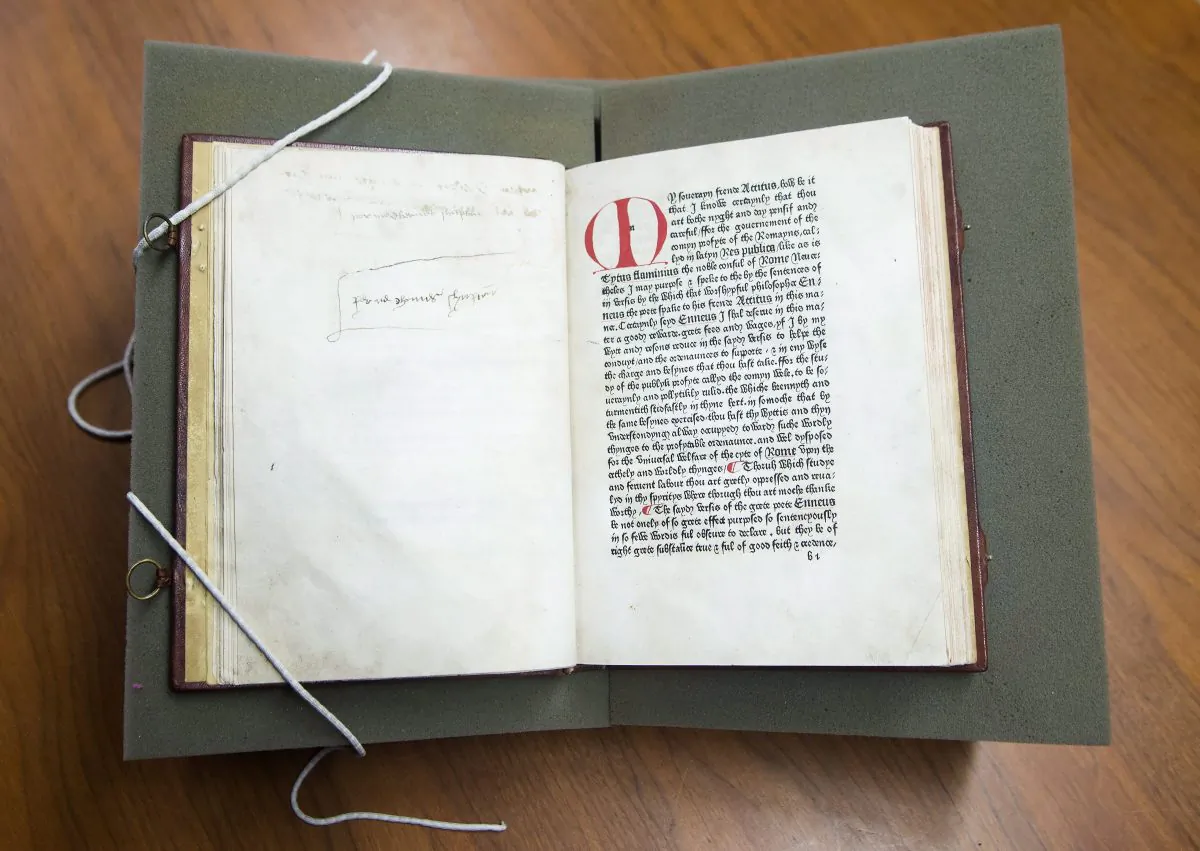 MY souerayn frende Atticus, how be it
that I knowe certaynly that thou
art bothe nyght and day pensif and
careful / ffor the gouernement of the
comyn profyte of the Romayns, cal-
lyd in latyn Res publica / like as is
Tytus flaminius the noble consul of Rome Neuer-
theles I may purpose & speke to the by the sentences of
in versis by the which that worshypful philosopher En-
neus the poete spake to his frende Atticus in this ma-
ner. Certaynly seyd Enneus I shal deserue in this ma-
ter a good rewarde. grete fees and wages, yf I by my
wytt and resons reduce in the sayd versis to helpe the
conduyt / and the ordenaunces to supporte, & in eny wyse
the charge and besynes that thou hast take. ffor the stu-
dy of the publyk profyte callyd the comyn wele, to be so-
ueraynly and pollytikly rulid. the whiche brennyth and
turmentith stidfastly in thyne hert. in somoche that by
the same besynes exercised. thou hast thy wyttis and thyn
vnderstondyng alway occupyed towardys suche wordly
thynges to the profytable ordenaunce. and wel dysposed
for the vniuersal welfare of the cyte of Rome vpon the
erthely and worldly thynges / ¶ Thoruh which studye
and feruent labour thou art gretly oppressed and traua-
lyd in thy spyritys where thorough thou art moche thanke
worthy / ¶ The sayd versis of the grete poete Enneus
be not onely of so grete effect purposed so sentencyously
in so fewe wordis ful obscure to declare, but they be of
right grete substance true & ful of good feith & credence,
b 1